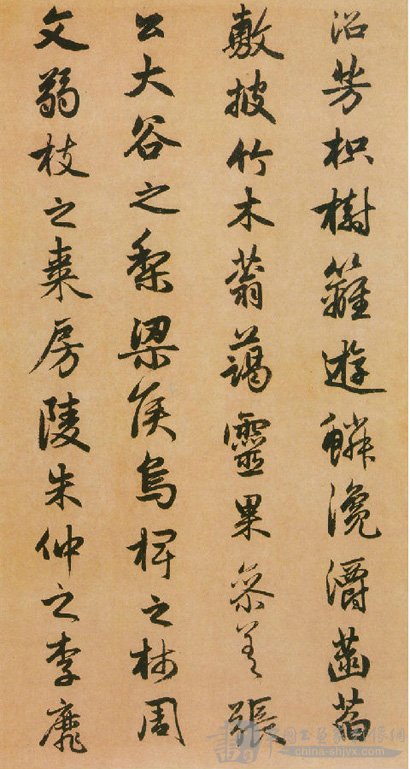 沼芳枳樹籬遊鱗瀺灂菡萏
敷披竹木蓊藹靈果參差張
公大谷之梨梁侯烏椑之柿周
文弱枝之棗房陵朱仲之李靡
china-shjyx.com